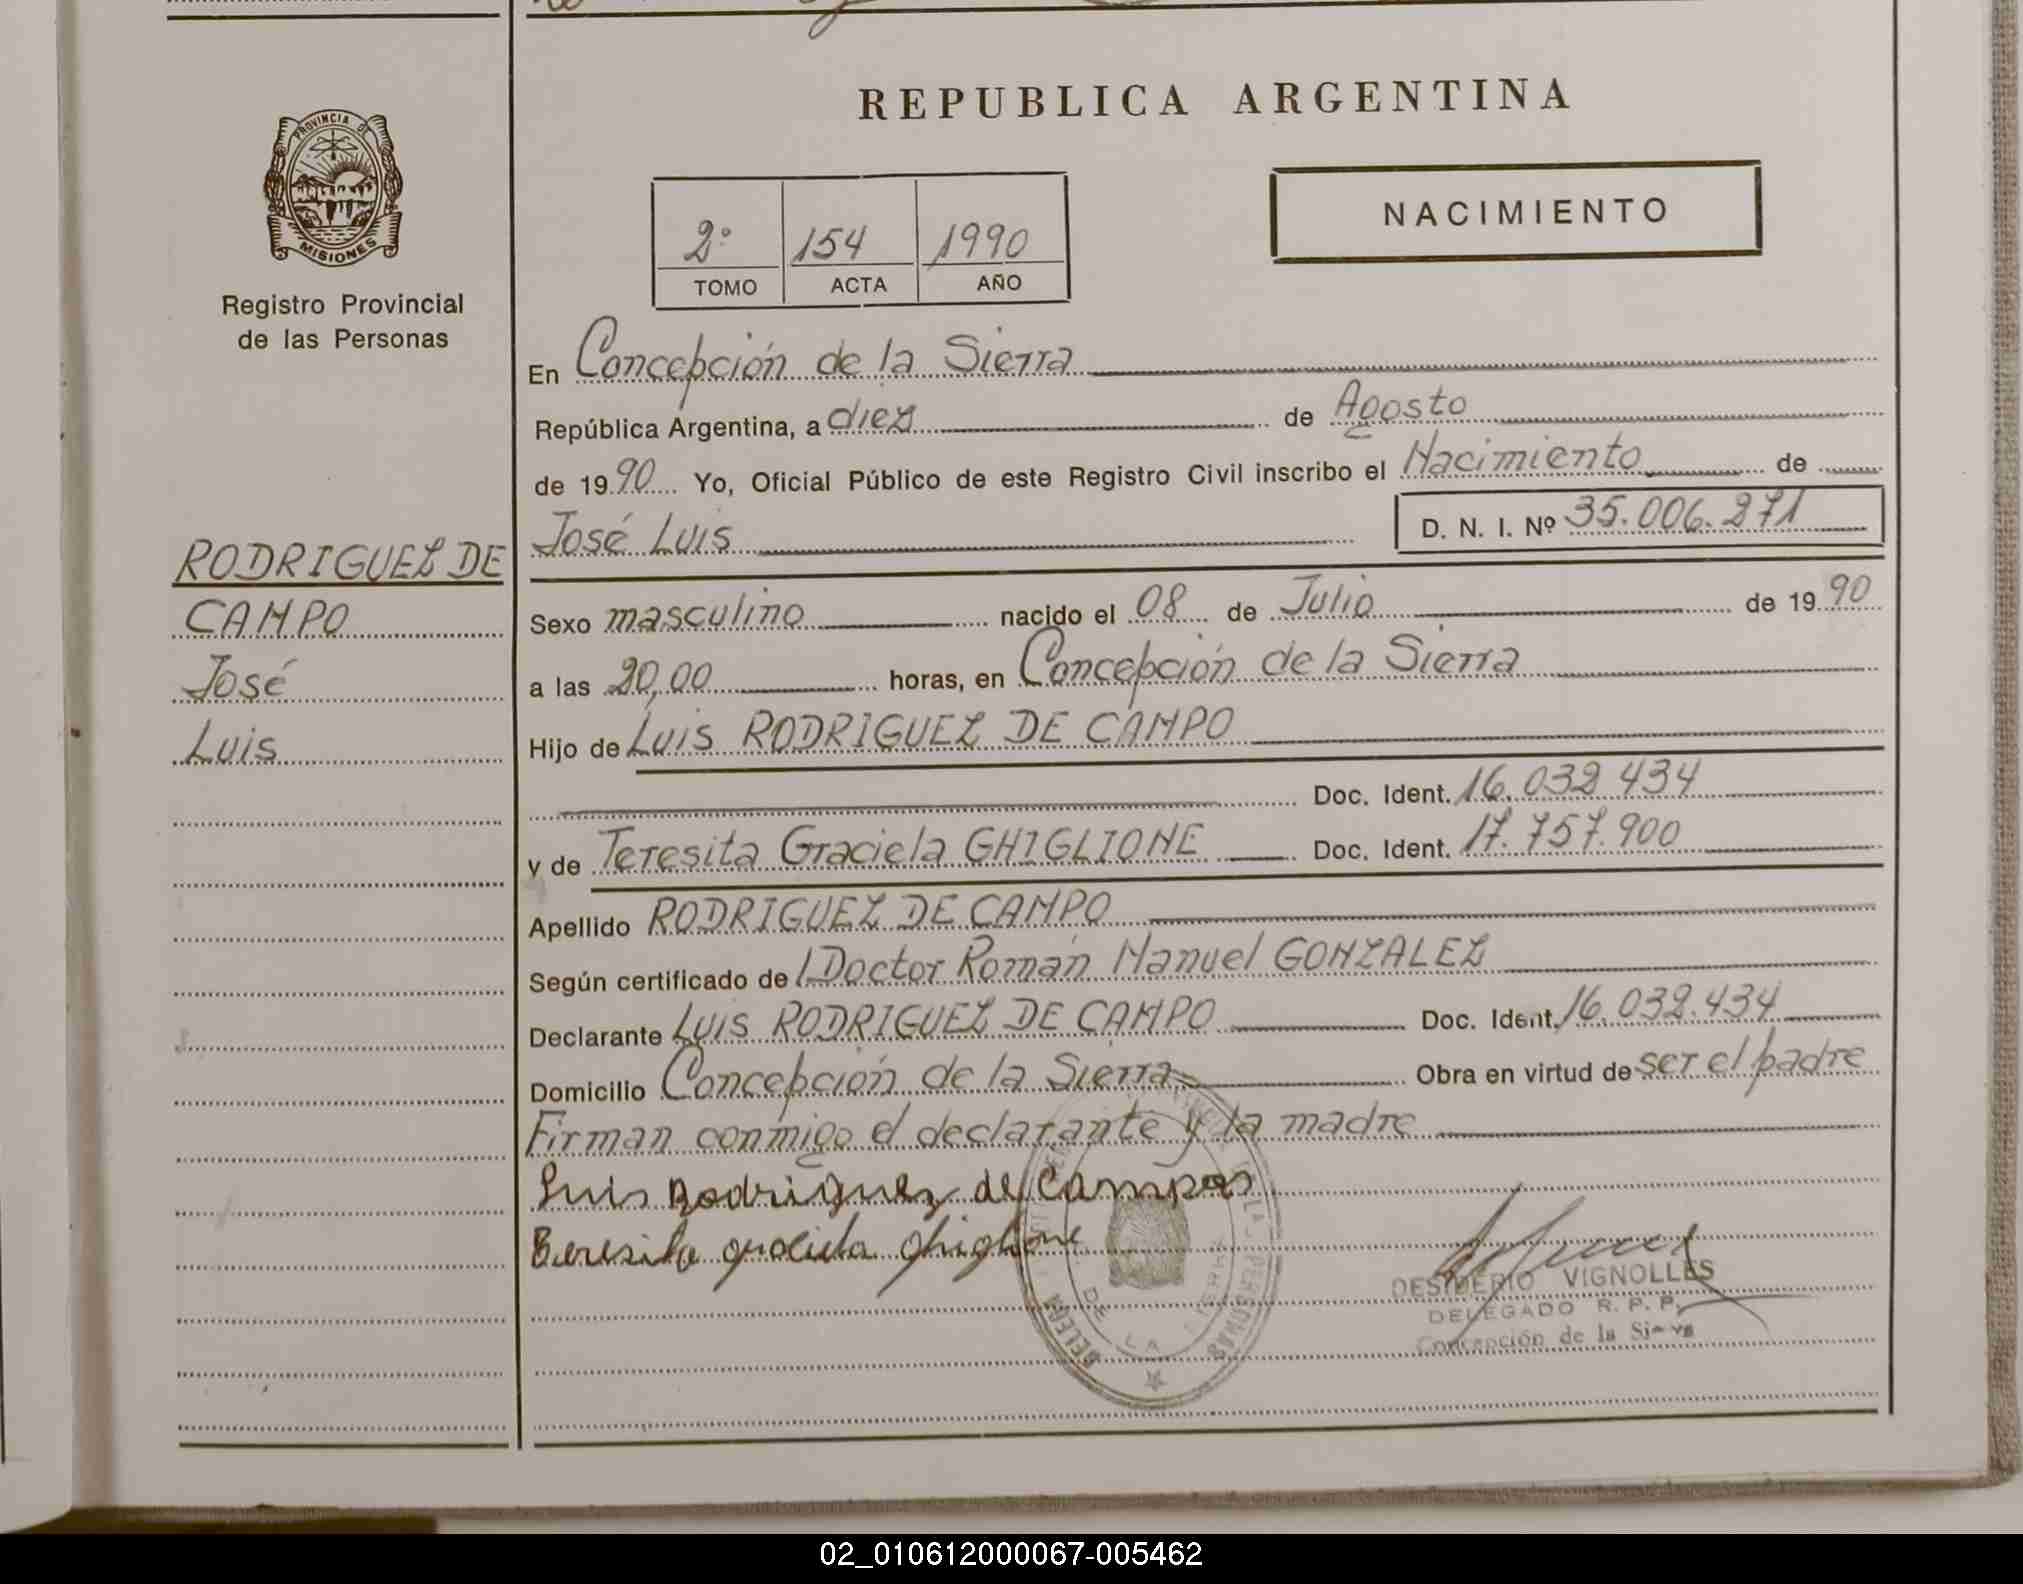 REPUBLICA ARGENTINA
PROVINCIA DE
MISIONES
Registro Provincial
de las Personas
NACIMIENTO
2º 154 1990
TOMO ACTA AÑO
En Concepción de la Sierra
República Argentina, a diez de Agosto
de 1990 Yo, Oficial Público de este Registro Civil inscribo el Nacimiento de
José Luis D. N. I. Nº 35.006.271
RODRIGUEZ DE
CAMPO
José
Luis
Sexo masculino nacido el 08 de Julio de 1990
a las 20,00 horas, en Concepción de la Sierra
Hijo de Luis RODRIGUEZ DE CAMPO
Doc. Ident. 16.032 434
y de Teresita Graciela GHIGLIONE Doc. Ident. 17.757.900
Apellido RODRIGUEZ DE CAMPO
Según certificado de Doctor Román Manuel GONZALEZ
Declarante Luis RODRIGUEZ DE CAMPO Doc. Ident. 16.032.434
Domicilio Concepción de la Sierra Obra en virtud de ser el padre
Firman conmigo el declarante y la madre
Luis Rodriguez de Campos
Teresita graciela ghiglione
DESIDERIO VIGNOLLES
DELEGADO R. P. P.
Concepción de la Sierra
DE LA PERSONAS
02_010612000067-005462